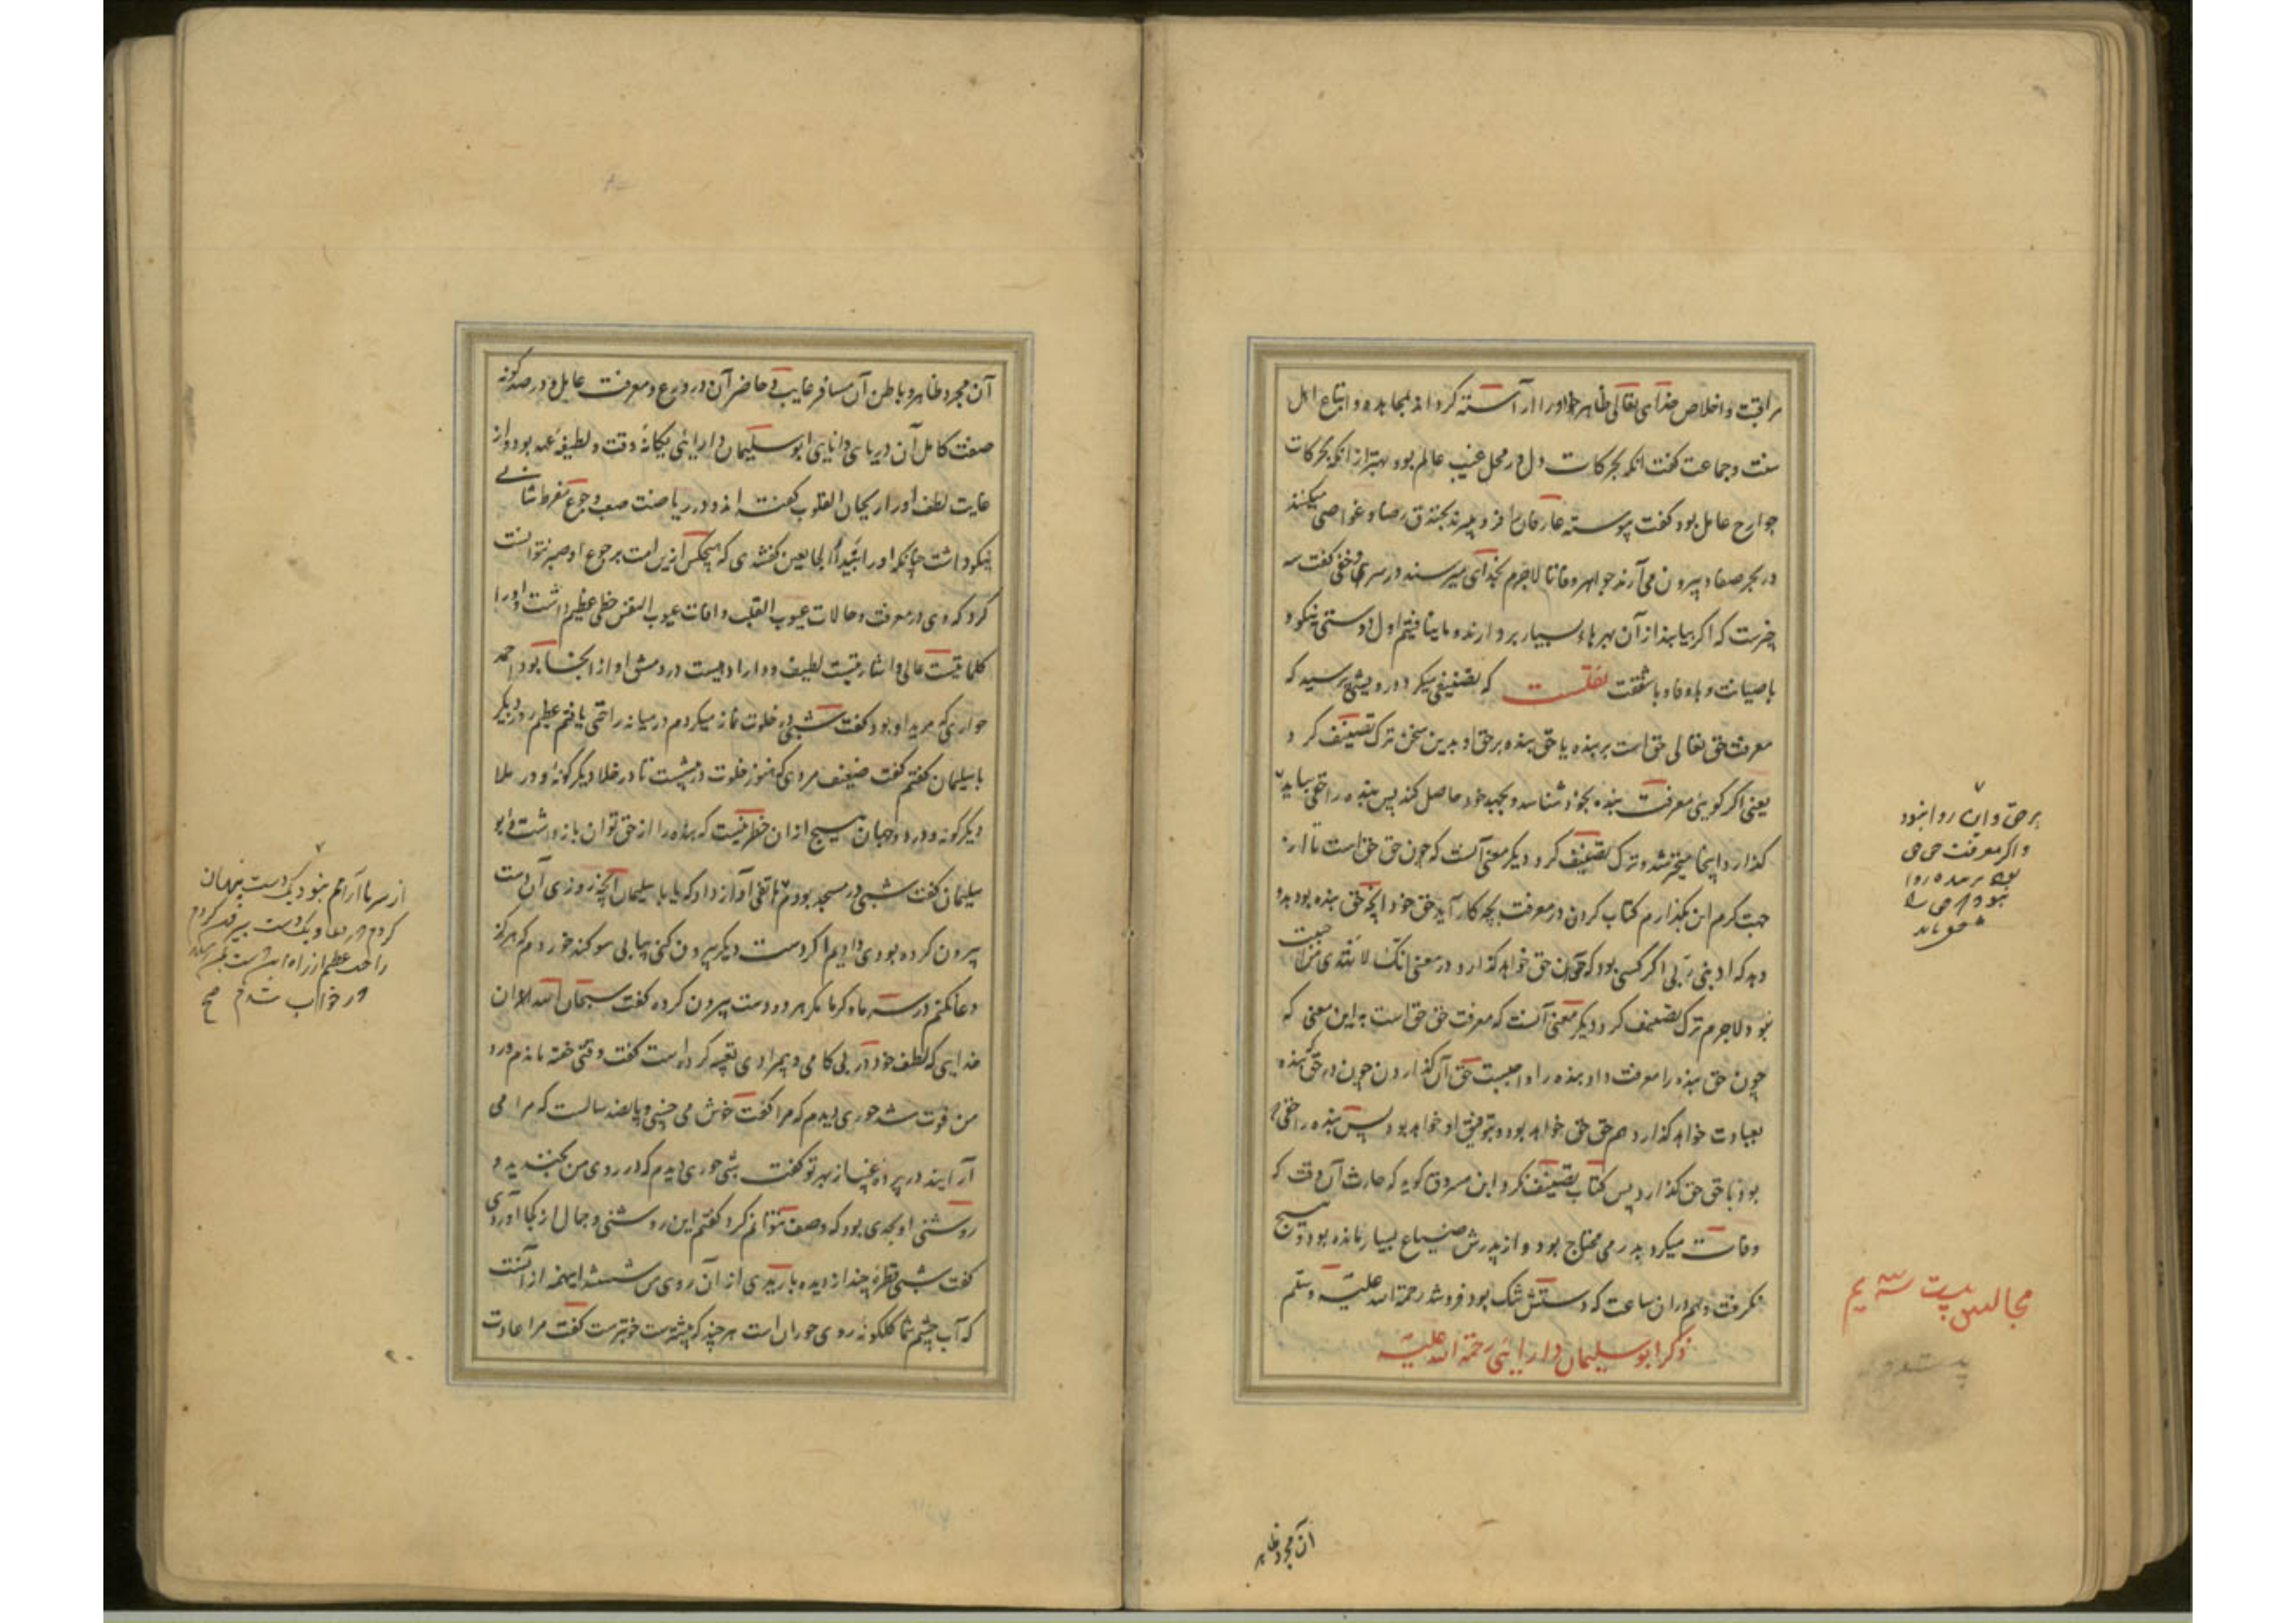 مراقبت و اخلاص خدای تعالی ظاهر او را آراسته گرداند بمجاهده و اتباع اهل
سنت و جماعت گفت انکه بحرکات دل در محل غیب عالم بود بهتر از انکه بحرکات
جوارح عامل بود گفت پیوسته عارفان فرو میبرند خندق رضا و غواصی میکنند
در بحر صفا و بیرون می آرند جواهر وفا تا لاجرم بخدای میرسند در سر و خفی گفت سه
چیزست که اگر بیابند از آن بهرهاء بسیار بردارند و ما نیافتیم اول دوستی نیکو و
با صیانت و با وفا و با شفقت نقلست که تصنیفی میکرد درویشی پرسید که
معرفت حق تعالی حق است بر بنده یا حق بنده بر حق او بدین سخن ترک تصنیف کرد
یعنی اگر گویی معرفت بنده بخود شناسد و بجهد خود حاصل کند پس بنده را حقی بباید
گذارد اینجا متحیر شد و ترک تصنیف کرد دیگر معنی آنست که چون حق حق است تا از
جهت کرم این بگذارم کتاب کردن در معرفت بچه کار آید حق خود انچه حق بنده بود بدو
دهد که ادبنی ربی اگر کسی بود که چون حق خواهد گذارد و در معنی انک لا تهدی من احببت
بود لاجرم ترک تصنیف کرد دیگر معنی آنست که معرفت حق حق است به این معنی که
چون حق بنده را معرفت داد بنده را واجبست حق آن گذاردن چون هر حق که بنده
بعبادت خواهد گذارد هم حق حق خواهد بود و بتوفیق او خواهد بود پس بنده را حقی
بود تا حق حق گذارد پس کتاب تصنیف نکرد ابن مسروق گوید که حارث آن وقت که
وفات میکرد بدرمی محتاج بود و از پدرش ضیاع بسیار مانده بود و هیچ
نگرفت و هم در ان ساعت که دستش تنک بود فرو شد رحمة الله علیه وسلم
ذکر ابو سلیمان دارایی رحمة الله علیه
بر حق و این روا نبود
و اگر معرفت حق حق
مجالس بیست سه یم
آن مجرد ظاهر
آن مجرد ظاهر و باطن آن مسافر غایب و حاضر آن در ورع و معرفت عامل و در صد گونه
صفت کامل آن دریای دانایی ابو سلیمان دارایی یگانه وقت و لطیفه عهد بود و از
غایت لطف او را ریحان القلوب گفته اند و در ریاضت صعب و جوع مفرط شانی
نیکو داشت چنانکه او را بندار الجایعین گفتندی که هیچکس ازین امت بر جوع او صبر نتوانست
کرد که وی در معرفت و حالات غیوب القلب و افات عیوب النفس حظی عظیم داشت و او را
کلماتیست عالی و اشاراتیست لطیف و دارا دهیست در دمشق او از انجا بود احمد
حواری که مرید او بود گفت شبی در خلوت نماز میکردم در میانه راحتی یافتم عظیم روز دیگر
با سلیمان گفتم گفت ضعیف مردی که هنوز خلوت در پیشست تا در خلا دیگر گونه و در ملا
دیگر گونه و در دو جهان هیچ از ان خطر نیست که بنده را از حق توان باز داشت و ابو
سلیمان گفت شبی در مسجد بودم هاتفی آواز داد که یا با سلیمان انچه روزی آن دست
بیرون کرده بودی دادیم اگر دست دیگر بیرون کنی بیابی سوگند خوردم که هرگز
دعا نکنم در سرما و گرما مگر هر دو دست بیرون کرده گفت سبحان الله الا ان
خدایی که لطف خود در بی کامی و بیمرادی تعبیه کرده است گفت وقتی خفته ماندم ورد
من فوت شد حوری دیدم که مرا گفت خوش می خسپی و پانصد سالست که مرا می
آرایند در پرده غیب از بهر تو گفت شبی حوری دیدم که در روی من بخندید و
روشنی او بحدی بود که وصف نتوانم کرد گفتم این روشنی و جمال از کجا آوردی
گفت شبی قطره چند از دیده باریدی از آن روی من شستند اینهمه از آنست
که آب چشم شما گلگونه روی حوران است هر چند که بیشترست خوبترست گفت مرا عادت
از سرما آرامم نبود یک دست پنهان
کردم در دعا و یک دست بیرون کردم
راحت عظیم از راه این دست
در خواب شدم صح